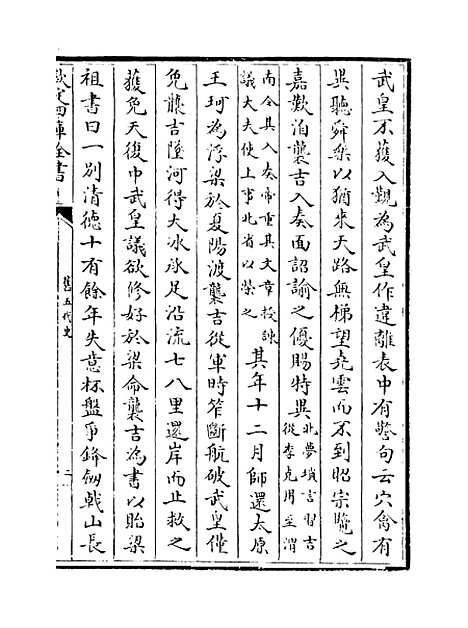 武皇不獲入覲為武皇作違離表中有警句云穴禽有
異聽舜樂以猶來天路無梯望堯雲而不到昭宗覽之
嘉歎洎襲吉入奏面詔諭之優賜特異北夢瑣言習吉
從李克用至渭
南令其入奏帝重其文章授諫
議大夫使上事北省以榮之其年十二月師還太原
王珂為浮梁於夏陽渡襲吉從軍時笮斷航破武皇僅
免襲吉墜河得大冰承足沿流七八里還岸而止救之
獲免天復中武皇議欲修好於梁命襲吉為書以貽梁
祖書曰一別清德十有餘年失意杯盤爭鋒劒戟山長
欽定四庫全書
舊五代史